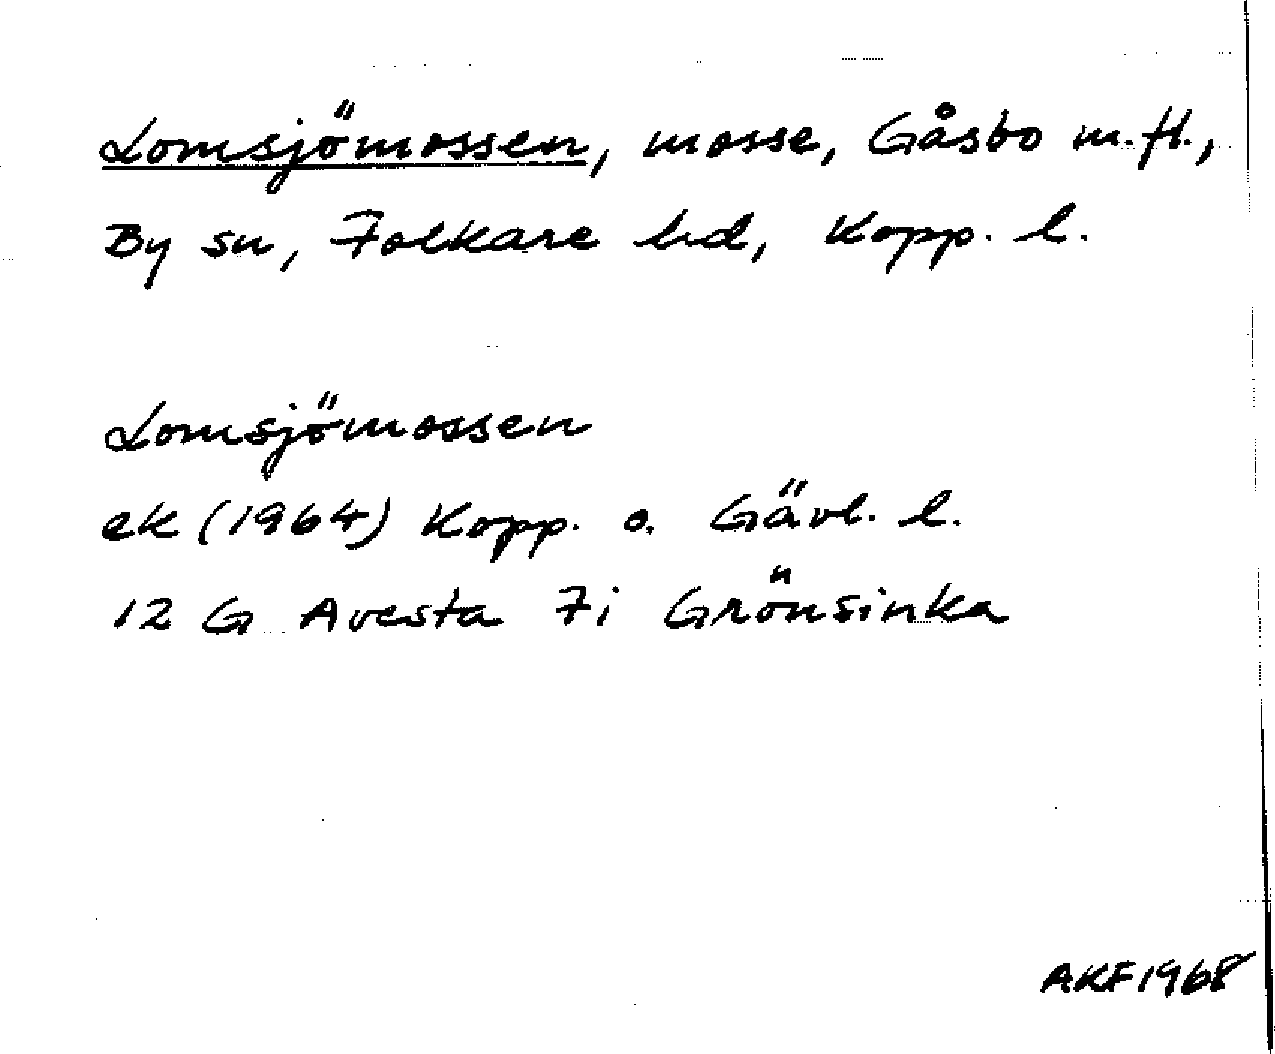 Lomsjömossen, mosse, Gåsbo m.fl.,
By sn, Folkare hd, Kopp. l.
Lomsjömossen
ek (1964) Kopp. o. Gävl. l.
12 G Avesta 7i Grönsinka
AKF 1968